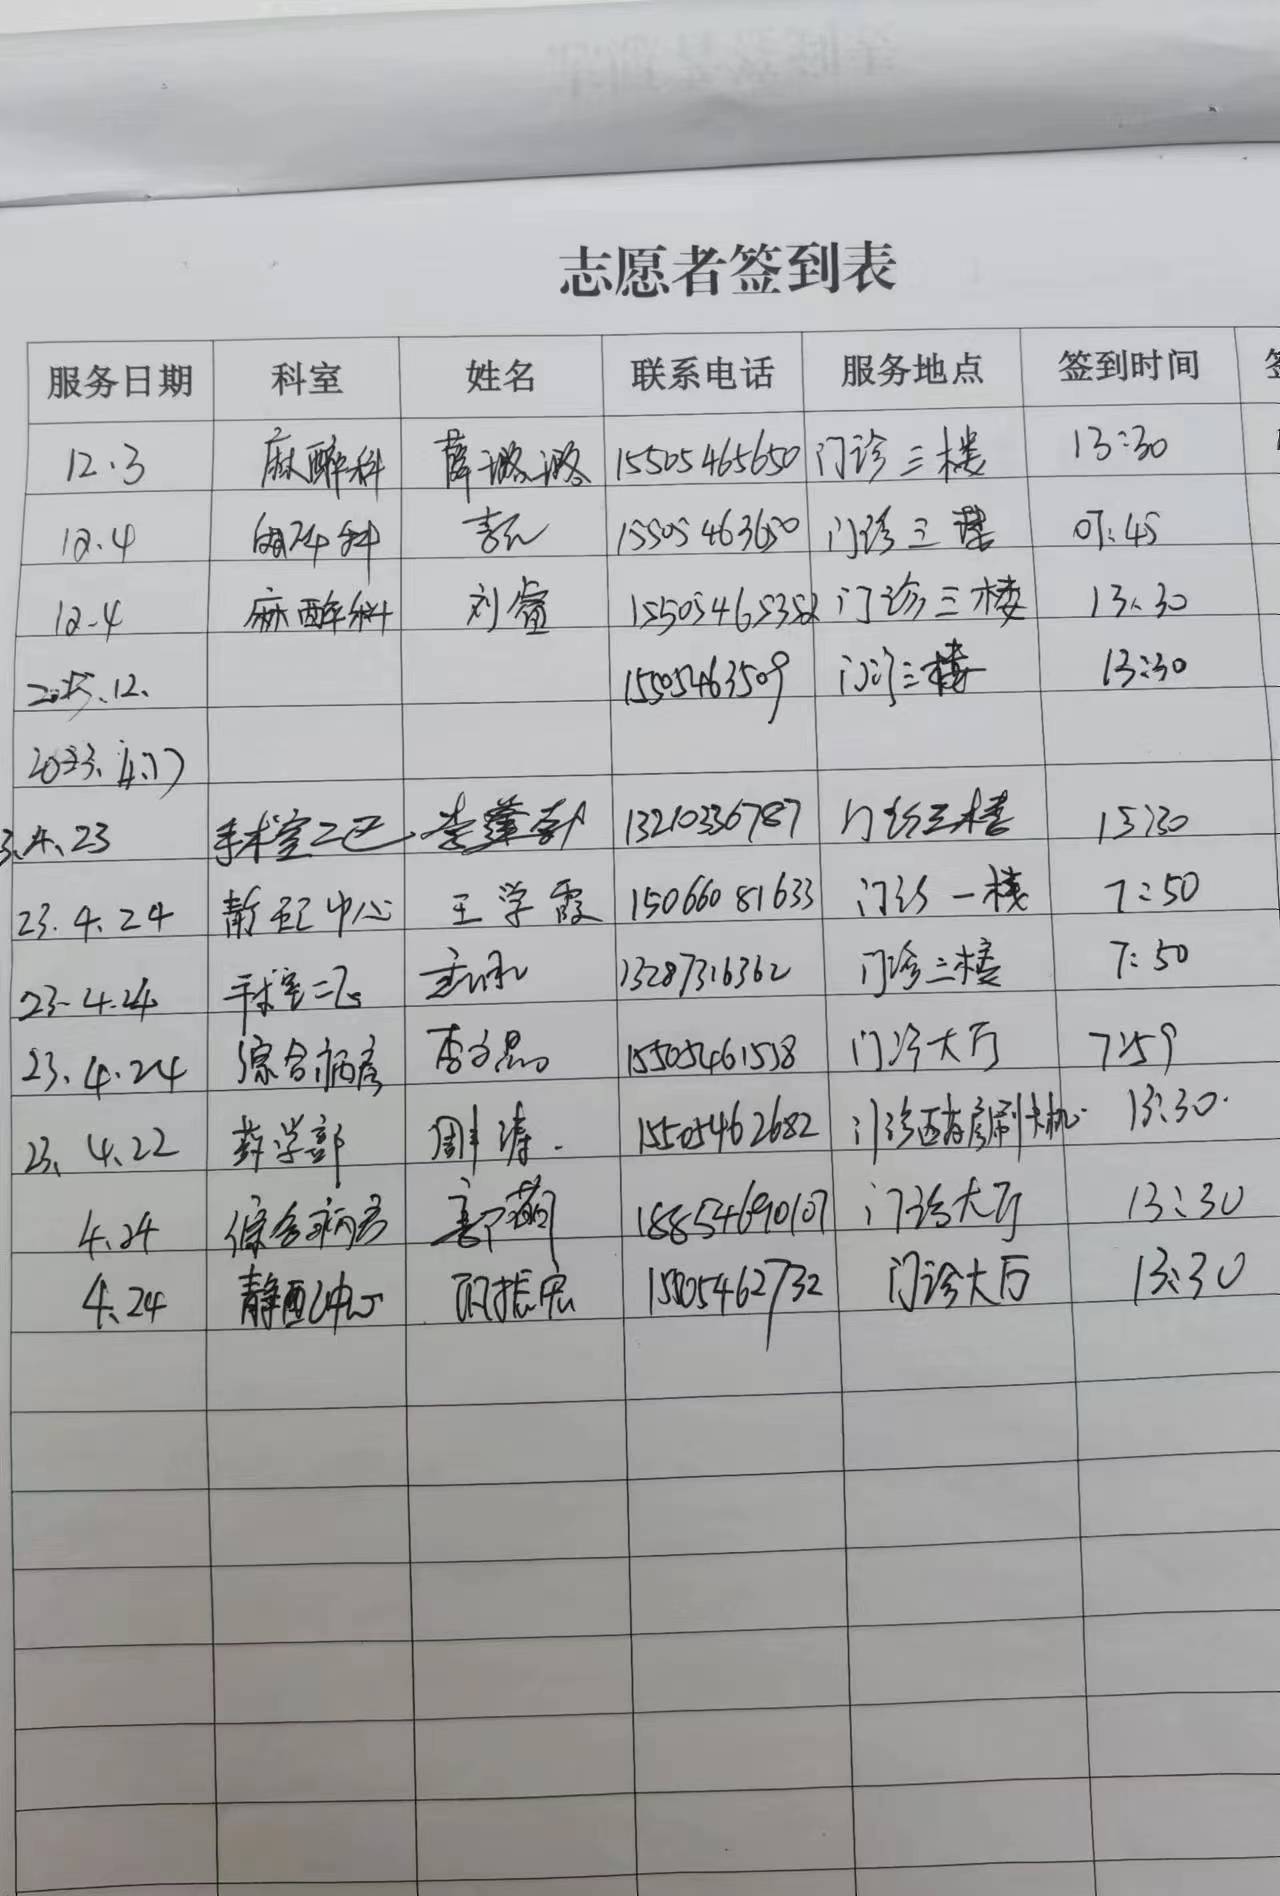 志愿者签到表
服务日期 科室 姓名 联系电话 服务地点 签到时间
12.3 麻醉科 薛璐璐 15505465650 门诊三楼 13:30
12.4 15505463650 门诊三楼 07:45
12.4 麻醉科 刘睿 15505465352 门诊三楼 13:30
12. 15505463509 门诊三楼 13:30
2023.4.17
3.4.23 手术室二区 13210336787 门诊三楼 15:30
23.4.24 静配中心 王学霞 15066081633 门诊一楼 7:50
23.4.24 手术室二区 13287316362 门诊三楼 7:50
23.4.24 综合病房 15505461558 门诊大厅 7:59
23.4.22 药学部 周涛 15505462682 门诊西药房刷卡机 13:30
4.24 综合病房 郭萌 18854690107 门诊大厅 13:30
4.24 静配中心 15505462732 门诊大厅 13:30